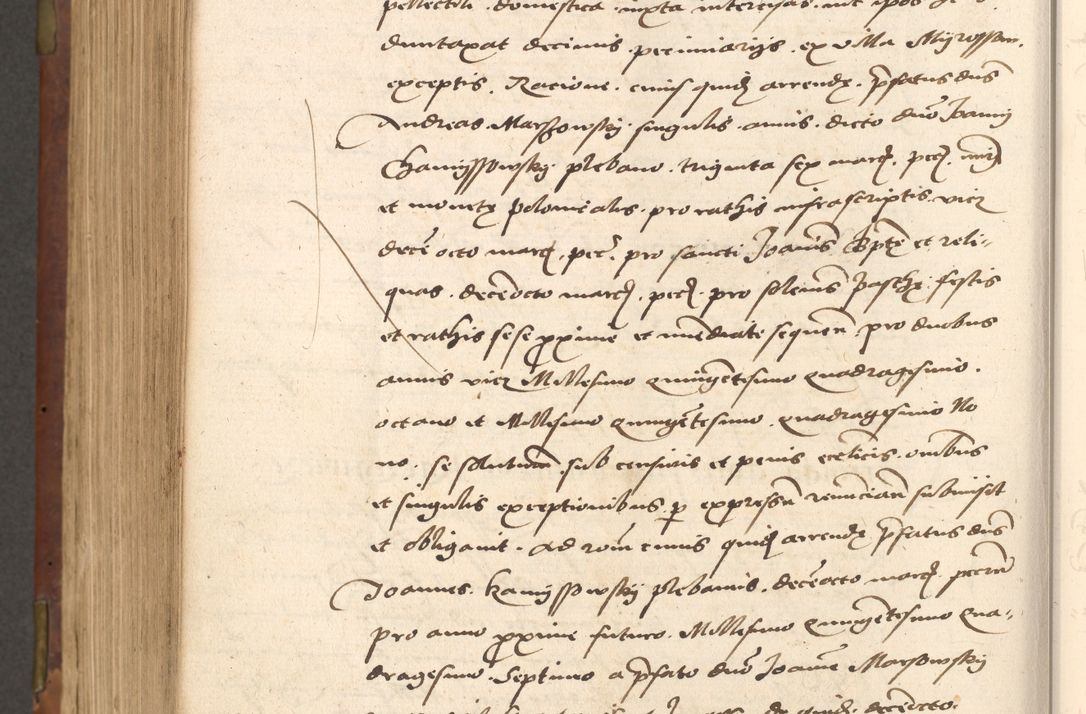 pellectili domestica iuxta
duntaxat decimis pecuniarijs ex villa Mijrossow
exceptis. Racione cuius quidē arrendę p̄fatus dn̄s
Andreas Marszowskij singulis annis dicto dn̄o Joanni
Chamijssowskij plebano triginta sex marcę. pecę. nūri
et monetę polonicalis pro rathis infrascriptis vicz
decē octo marcę. pecę. pro sancti Joan̄nis Bp̄tę et reli-
quas decēocto marcę. pecę. pro solēnis paschę festis
et rathis sese proxime et im̄ediate sequen̄. pro duobus
annis vicz Millesimo quingētesimo quadragesimo
octauo et Millesimo quingētesimo quadragesimo No
no. se soluturum sub censuris et penis eccl̄icis omībus
et singulis exceptionibus per expressam renūcian̄ submisit
et obligauit. Ad rōm cuius quidē arrendę p̄fatus dn̄s
Joannes Kamijssowskij plebanus decēocto marcę. pecūn̄
pro anno proxime futuro Millesimo quingētesimo qua-
dragesimo septimo a p̄fato dn̄o Joan̄ne Marsowskij
decēocto